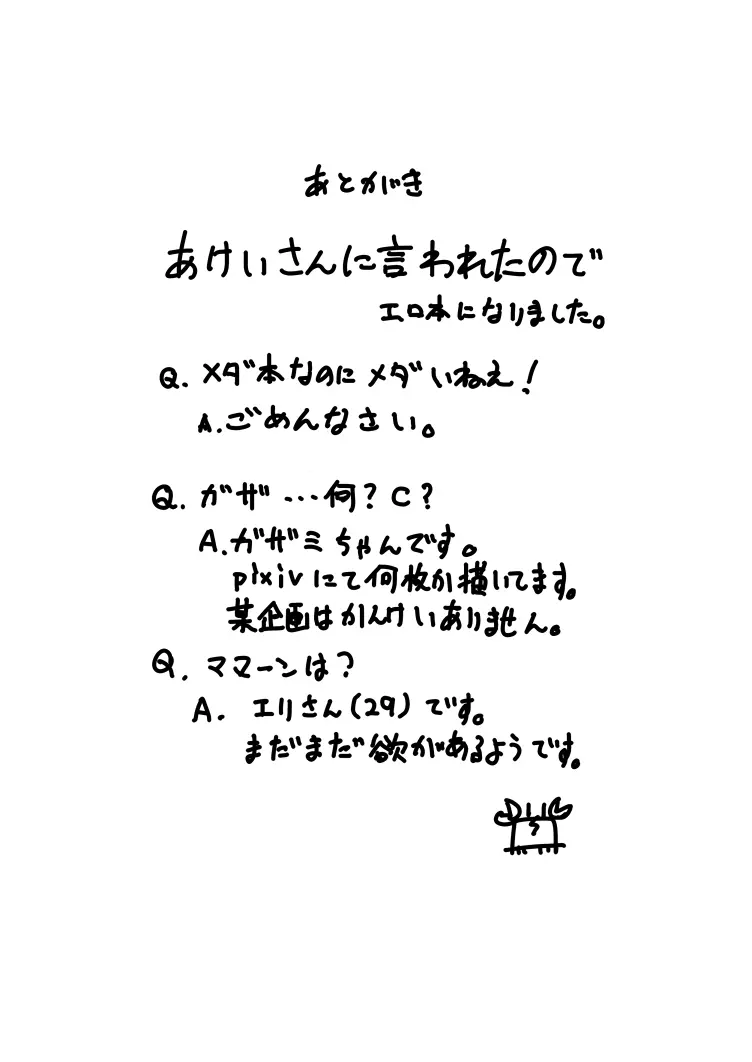 あとがき
あけいさんに言われたので
エロ本になりました。
Q. メダ本なのにメダいねえ!
A.ごめんなさい。
Q. ガザ…何? C?
A.ガザミちゃんです。
pixivにて何枚か描いてます。
某企画はかんけいありません。
Q. ママーンは?
A. エリさん(29)です。
まだまだ欲があるようです。